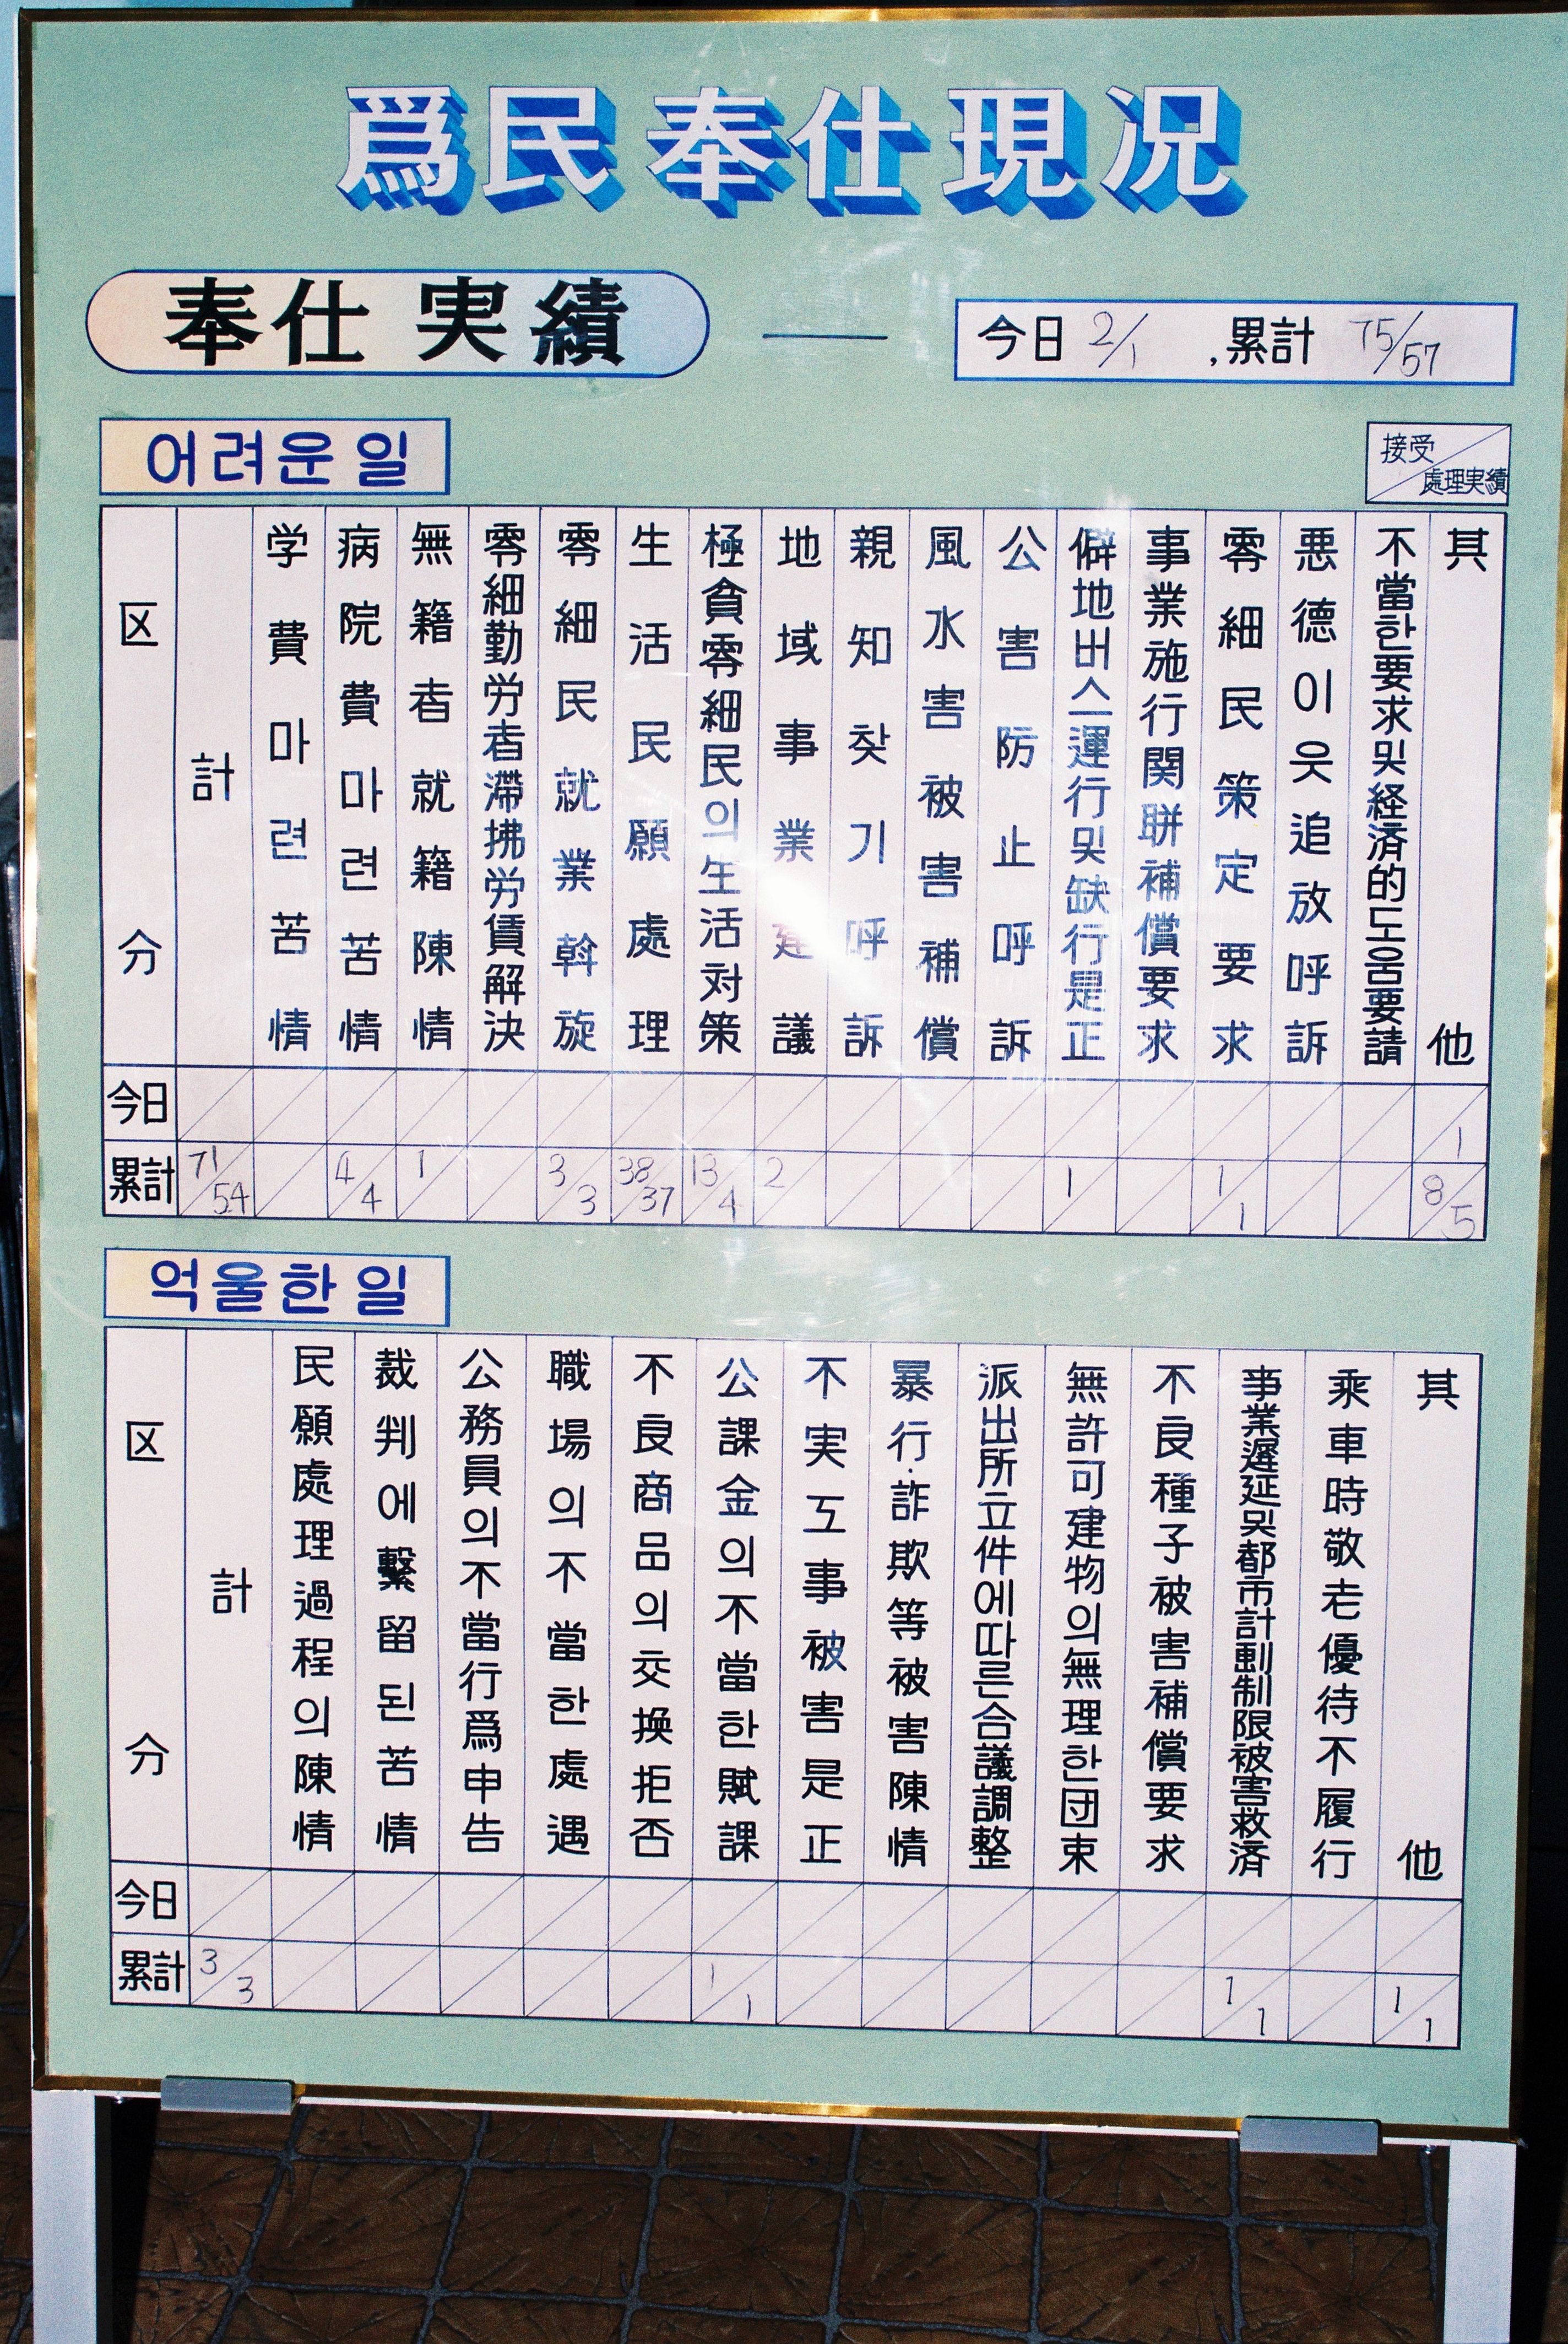 爲民奉仕現况
奉仕 実績 — 今日 2/1 , 累計 75/57
어려운 일
接受/處理実績
区分
計
学費마련苦情
病院費마련苦情
無籍者就籍陳情
零細勤労者滞拂労賃解決
零細民就業斡旋
生活民願處理
極貧零細民의生活対策
地域事業建議
親知찾기呼訴
風水害被害補償
公害防止呼訴
僻地버스運行및缺行是正
事業施行関聨補償要求
零細民策定要求
悪德이웃追放呼訴
不當한要求및経済的도움要請
其他
今日 / / / / / / / / / / / / / / / / /1
累計 71/54 / 4/4 1/ / 3/3 38/37 13/4 2/ / / / /1 / 1/1 / / 8/5
억울한 일
区分
計
民願處理過程의陳情
裁判에繫留된苦情
公務員의不當行爲申告
職場의不當한處遇
不良商品의交換拒否
公課金의不當한賦課
不実工事被害是正
暴行·詐欺等被害陳情
派出所立件에따른合議調整
無許可建物의無理한団束
不良種子被害補償要求
事業遲延및都市計劃制限被害救済
乘車時敬老優待不履行
其他
今日 / / / / / / / / / / / / / / /
累計 3/3 / / / / / 1/1 / / / / / 1/1 / 1/1